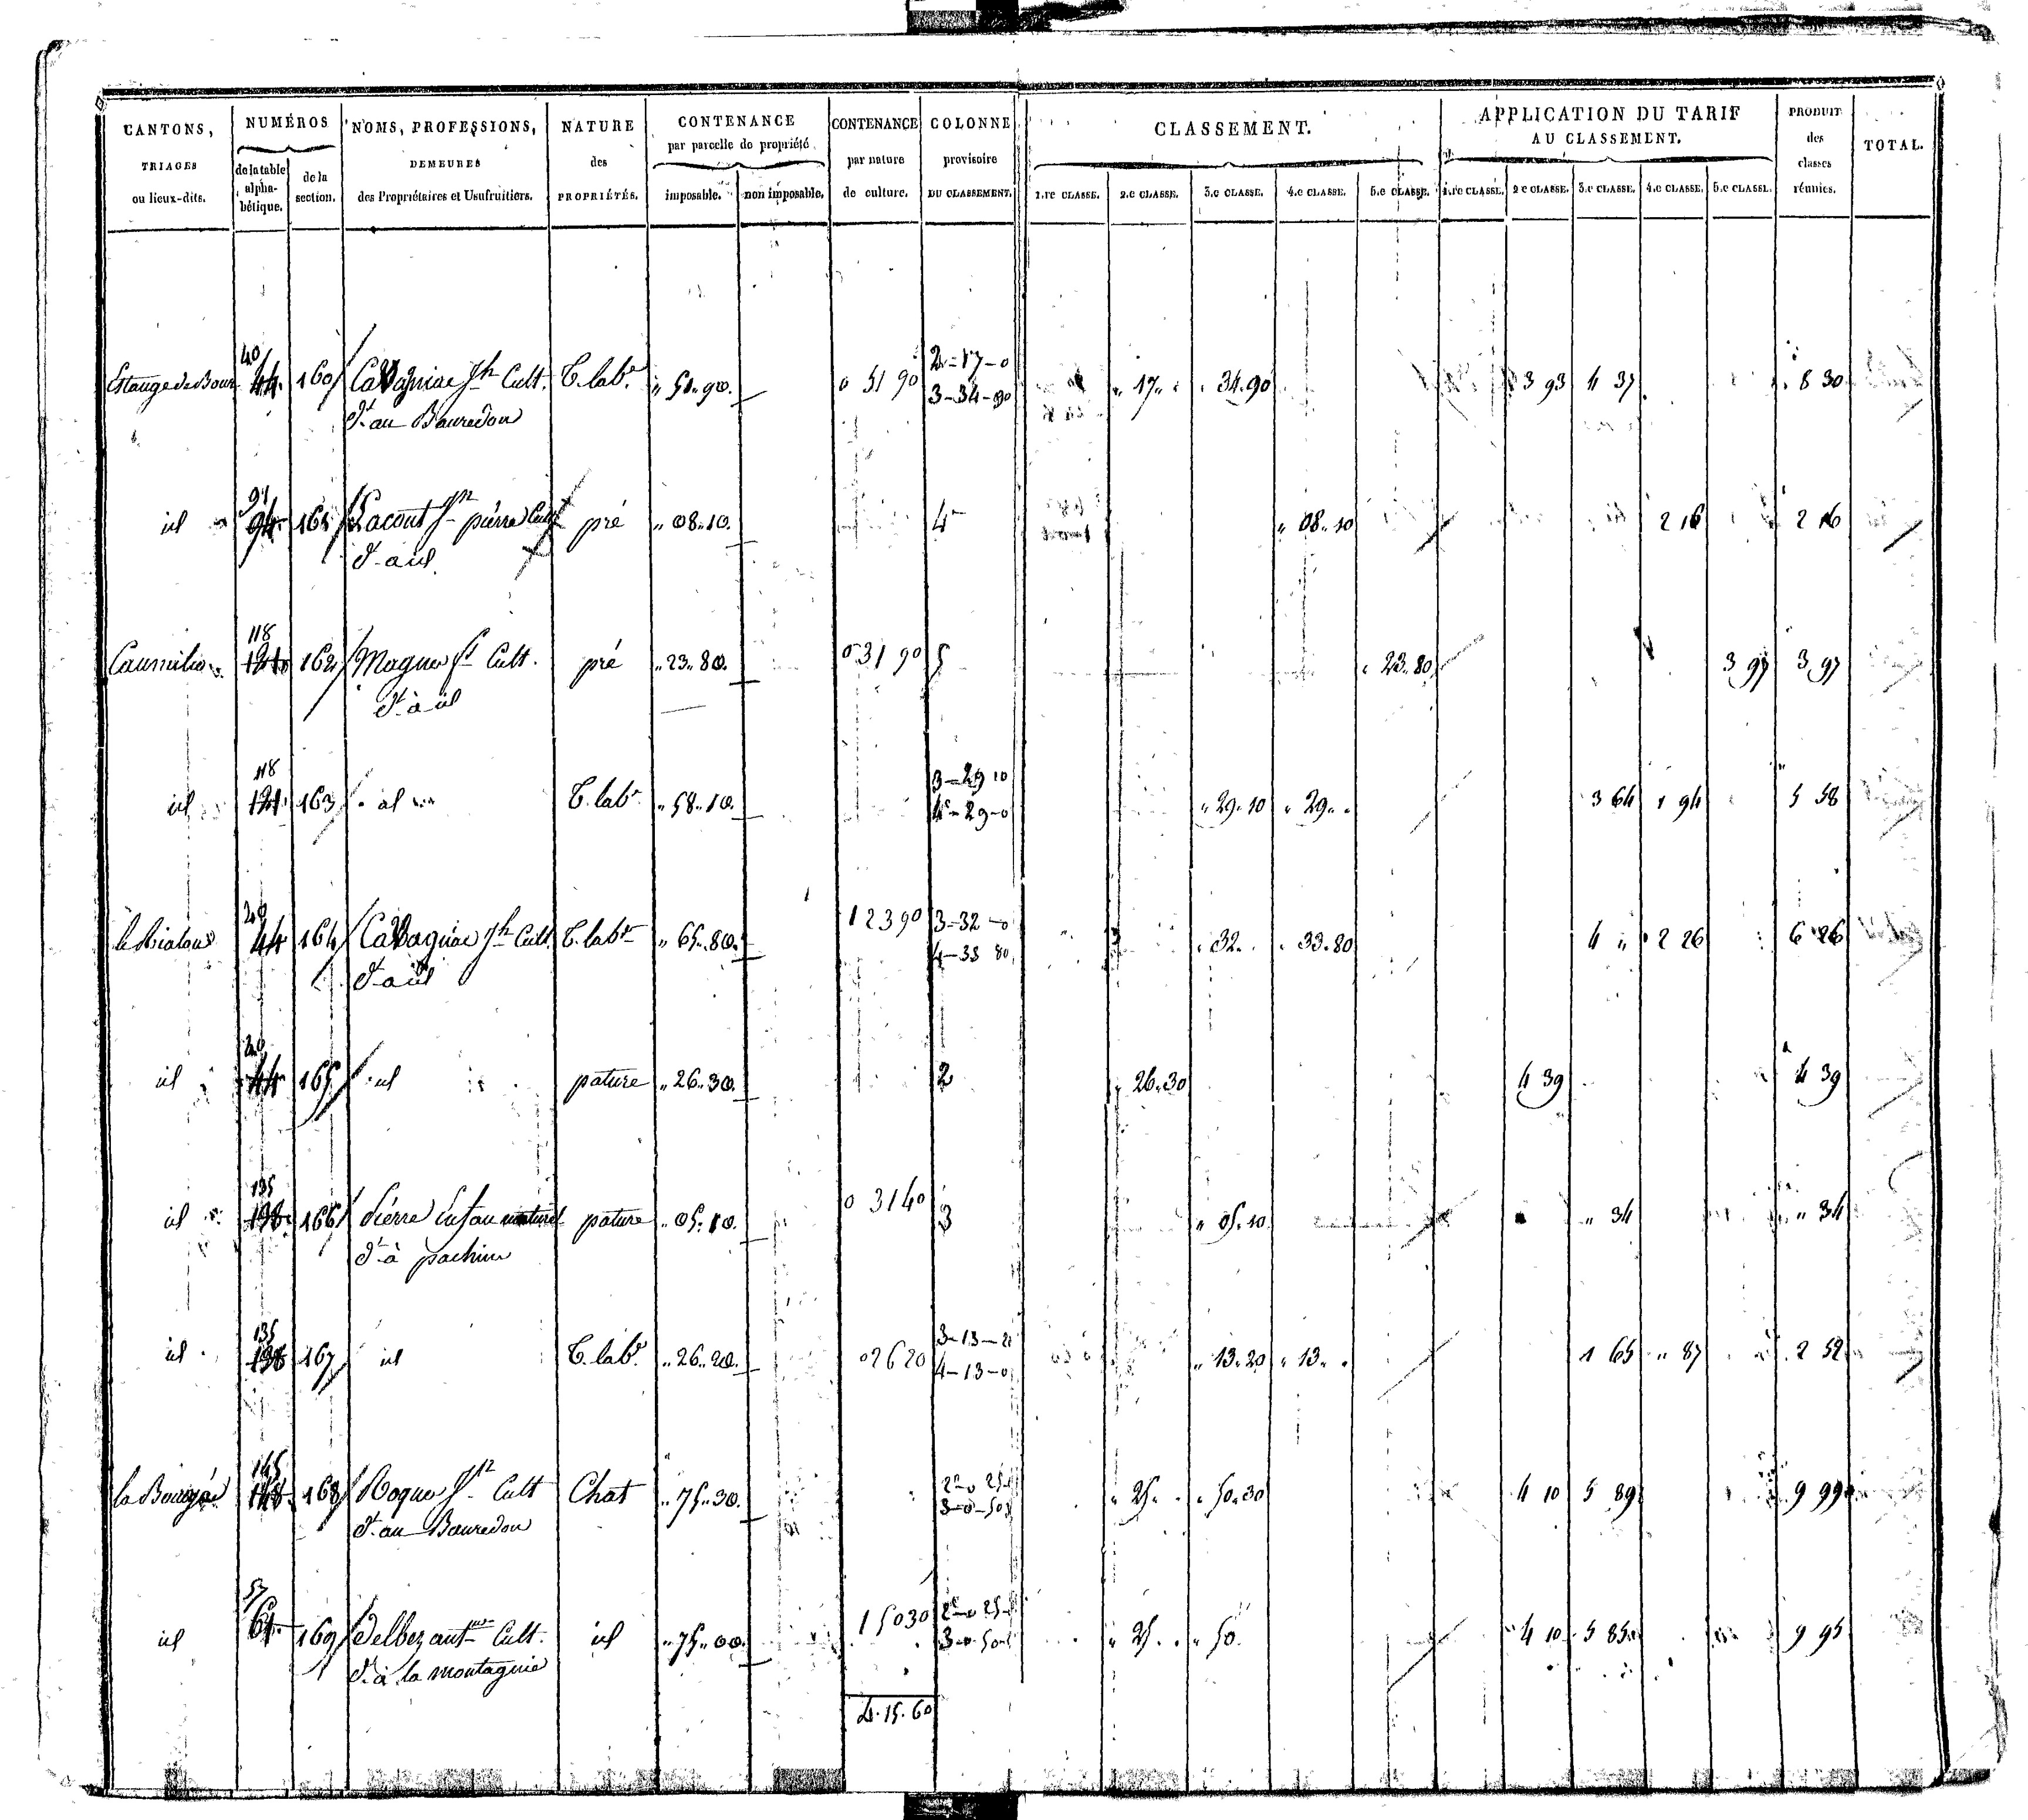 CANTONS, TRIAGES ou lieux-dits.
NUMÉROS de la table alpha-bétique. de la section.
NOMS, PROFESSIONS, DEMEURES des Propriétaires et Usufruitiers.
NATURE des PROPRIÉTÉS.
CONTENANCE par parcelle de propriété imposable. non imposable.
CONTENANCE par nature de culture.
COLONNE provisoire DU CLASSEMENT.
CLASSEMENT. 1.re CLASSE. 2.e CLASSE. 3.e CLASSE. 4.e CLASSE. 5.e CLASSE.
APPLICATION DU TARIF AU CLASSEMENT. 1.re CLASSE. 2.e CLASSE. 3.e CLASSE. 4.e CLASSE. 5.e CLASSE.
PRODUIT des classes réunies.
TOTAL.
40 2-17-0
44 160 Cult. T. labe. " 51.90. 0 51 90 3-34-90 " 17. " " 34.90 3 93 4 37 8 30
dt au Bouredou
91
id 94 161 Lacout Jn pierre Cult pré " 08.10. 4 " 08.10 2 16 2 16
dt aid.
118
121 162 Cult. pré " 23.80. 0 31 90 5 " 23.80 3 97 3 97
dt à id
118 3-29 10
id 121 163 id T. labe. " 58.10. 4-29-0 " 29.10 " 29. " 3 64 1 94 5 58
40 1 23 90 3-32-0
44 164 Cult. T. labe " 65.80. 4-33 80 " 32. " 33.80 4 " 2 26 6 26
dt aid
40
id 44 165 id pature " 26.30. 2 " 26.30 4 39 4 39
135 0 31 40
id 138 166 Pierre naturel pature " 05.10. 3 " 05.10 " 34 " 34
dt à pachins
135 3-13-2
id 138 167 id T. labe. " 26.20. 0 26 20 4-13-0 " 13.20 " 13. " 1 65 " 87 2 52
145 2-0 25
148 168 Roques Cult Chat " 75.30. 3-0-50 " 25. " " 50.30 4 10 5 89 9 99
dt au Bouredou
57 1 50 30 2-0 25
id 61 169 Delbez antne Cult. id " 75.00. 3-0-50 " 25. " " 50. 4 10 5 85 9 95
dt à la montagnie
4.15.60